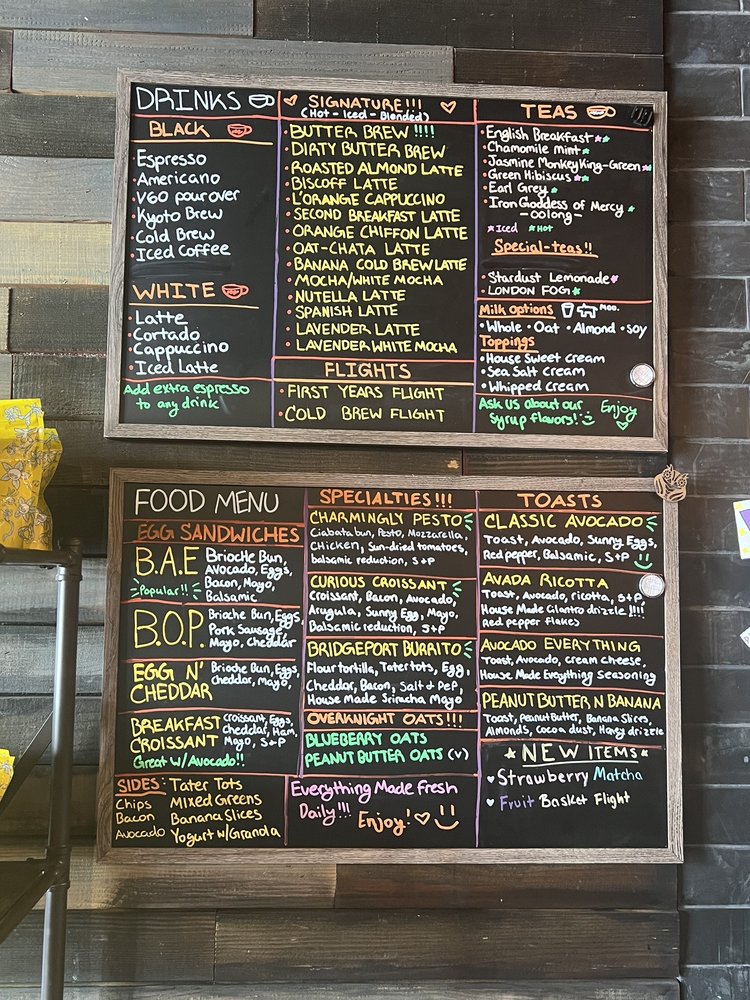 DRINKS
BLACK
• Espresso
• Americano
• V60 pour over
• Kyoto Brew
• Cold Brew
• Iced Coffee
WHITE
• Latte
• Cortado
• Cappuccino
• Iced Latte
Add extra espresso
to any drink
SIGNATURE!!!
(Hot - Iced - Blended)
• BUTTER BREW !!!!
• DIRTY BUTTER BREW
• ROASTED ALMOND LATTE
• BISCOFF LATTE
• L'ORANGE CAPPUCCINO
• SECOND BREAKFAST LATTE
• ORANGE CHIFFON LATTE
• OAT-CHATA LATTE
• BANANA COLD BREW LATTE
• MOCHA/WHITE MOCHA
• NUTELLA LATTE
• SPANISH LATTE
• LAVENDER LATTE
• LAVENDER WHITE MOCHA
FLIGHTS
• FIRST YEARS FLIGHT
• COLD BREW FLIGHT
TEAS
• English Breakfast
• Chamomile Mint
• Jasmine Monkey King-Green
• Green Hibiscus
• Earl Grey
• Iron Goddess of Mercy
-oolong-
Iced Hot
Special-teas!!
• Stardust Lemonade
• LONDON FOG
Milk options Moo.
• Whole • Oat • Almond • soy
Toppings
• House Sweet cream
• Sea Salt cream
• Whipped cream
Ask us about our
Syrup flavors! Enjoy
FOOD MENU
EGG SANDWICHES
B.A.E Brioche Bun,
Avocado, Eggs,
Bacon, Mayo,
Balsamic
Popular!!
B.O.P. Brioche Bun, Eggs,
Pork Sausage,
Mayo, Cheddar
EGG N' CHEDDAR Brioche Bun, Eggs,
cheddar, Mayo,
BREAKFAST CROISSANT Croissant, Eggs,
Cheddar, Ham,
Mayo, S+P
Great w/Avocado!!
SIDES: Tater Tots
Chips Mixed Greens
Bacon Banana Slices
Avocado Yogurt w/Granola
SPECIALTIES!!!
CHARMINGLY PESTO
Ciabata bun, Pesto, Mozzarella,
Chicken, Sun-dried tomatoes,
balsamic reduction, S+P
CURIOUS CROISSANT
Croissant, Bacon, Avocado,
Arugula, Sunny Egg, Mayo,
Balsamic reduction, S+P
BRIDGEPORT BURRITO
Flour tortilla, Tater tots, Egg,
Cheddar, Bacon, Salt & Pep,
House Made Sriracha Mayo
OVERKNIGHT OATS!!!
BLUEBERRY OATS
PEANUT BUTTER OATS (V)
Everything Made Fresh
Daily!!! Enjoy!
TOASTS
CLASSIC AVOCADO
Toast, Avocado, Sunny Eggs,
Red pepper, Balsamic, S+P
AVADA RICOTTA
Toast, Avocado, ricotta, S+P
House Made Cilantro drizzle !!!!
Red pepper Flakes
AVOCADO EVERYTHING
Toast, Avocado, cream cheese,
House Made Everything Seasoning
PEANUT BUTTER N BANANA
Toast, Peanut Butter, Banana Slices,
Almonds, Cocoa dust, Honey drizzle
NEW ITEMS
Strawberry Matcha
Fruit Basket Flight